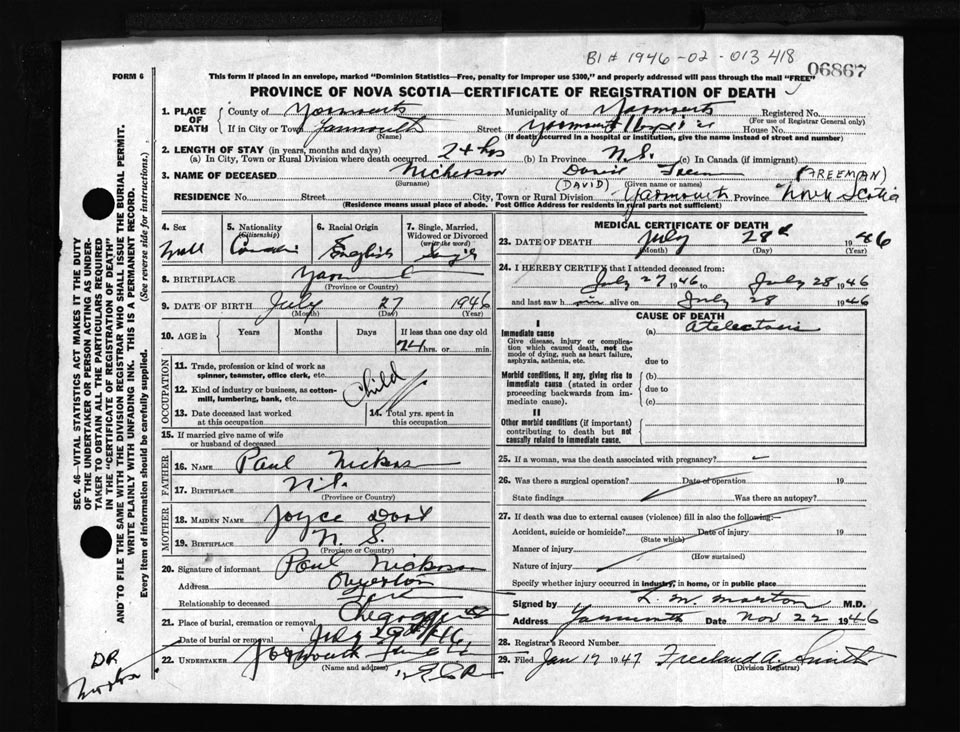 BI # 1946-02-013418
06867
FORM 6
This form if placed in an envelope, marked "Dominion Statistics—Free, penalty for improper use $300," and properly addressed will pass through the mail "FREE"
PROVINCE OF NOVA SCOTIA—CERTIFICATE OF REGISTRATION OF DEATH
SEC. 46—VITAL STATISTICS ACT MAKES IT THE DUTY
OF THE UNDERTAKER OR PERSON ACTING AS UNDER-
TAKER TO OBTAIN ALL THE PARTICULARS REQUIRED
IN THE "CERTIFICATE OF REGISTRATION OF DEATH"
AND TO FILE THE SAME WITH THE DIVISION REGISTRAR WHO SHALL ISSUE THE BURIAL PERMIT.
WRITE PLAINLY WITH UNFADING INK. THIS IS A PERMANENT RECORD.
Every item of information should be carefully supplied. (See reverse side for instructions.)
1. PLACE OF DEATH
County of Yarmouth Municipality of Yarmouth Registered No.
(For use of Registrar General only)
If in City or Town Yarmouth Street Yarmouth Hospital House No.
(If death occurred in a hospital or institution, give the name instead of street and number)
2. LENGTH OF STAY (in years, months and days)
(a) In City, Town or Rural Division where death occurred 24 hrs (b) In Province N.S. (c) In Canada (if immigrant)
3. NAME OF DECEASED Nickerson David Freeman (FREEMAN)
(Surname) (DAVID) (Given name or names)
RESIDENCE No. Street City, Town or Rural Division Yarmouth Province Nova Scotia
(Residence means usual place of abode. Post Office Address for residents in rural parts not sufficient)
4. Sex Male
5. Nationality (Citizenship) Canadian
6. Racial Origin English
7. Single, Married, Widowed or Divorced (write the word) Single
8. BIRTHPLACE Yarm
(Province or Country)
9. DATE OF BIRTH July 27 1946
(Month) (Day) (Year)
10. AGE in Years Months Days If less than one day old
24 hrs. or min.
OCCUPATION
11. Trade, profession or kind of work as
spinner, teamster, office clerk, etc.
12. Kind of industry or business, as cotton-
mill, lumbering, bank, etc.
Child
13. Date deceased last worked
at this occupation
14. Total yrs. spent in
this occupation
15. If married give name of wife
or husband of deceased
FATHER
16. NAME Paul Nickerson
17. BIRTHPLACE N.S.
(Province or Country)
MOTHER
18. MAIDEN NAME Joyce
19. BIRTHPLACE N. S.
(Province or Country)
20. Signature of informant Paul Nickerson
Address Overton
Relationship to deceased
21. Place of burial, cremation or removal Chegoggin
Date of burial or removal July 29 46
22. UNDERTAKER
(Name and address)
DR
Morton
MEDICAL CERTIFICATE OF DEATH
23. DATE OF DEATH July 28th 1946
(Month) (Day) (Year)
24. I HEREBY CERTIFY that I attended deceased from:
July 27 1946 to July 28 1946
and last saw him alive on July 28 1946
CAUSE OF DEATH
I
Immediate cause (a) Atelectasis
Give disease, injury or complica-
tion which caused death, not the
mode of dying, such as heart failure,
asphyxia, asthenia, etc. due to
Morbid conditions, if any, giving rise to (b)
immediate cause (stated in order due to
proceeding backwards from im-
mediate cause). (c)
II
Other morbid conditions (if important)
contributing to death but not
causally related to immediate cause.
25. If a woman, was the death associated with pregnancy?
26. Was there a surgical operation? Date of operation 19
State findings Was there an autopsy?
27. If death was due to external causes (violence) fill in also the following:—
Accident, suicide or homicide? Date of injury 19
(State which)
Manner of injury
(How sustained)
Nature of injury
Specify whether injury occurred in industry, in home, or in public place
Signed by L. M. Morton M.D.
Address Yarmouth Date Nov 22 1946
28. Registrar's Record Number
29. Filed Jan 17 1947 Freeland A. Smith
(Division Registrar)